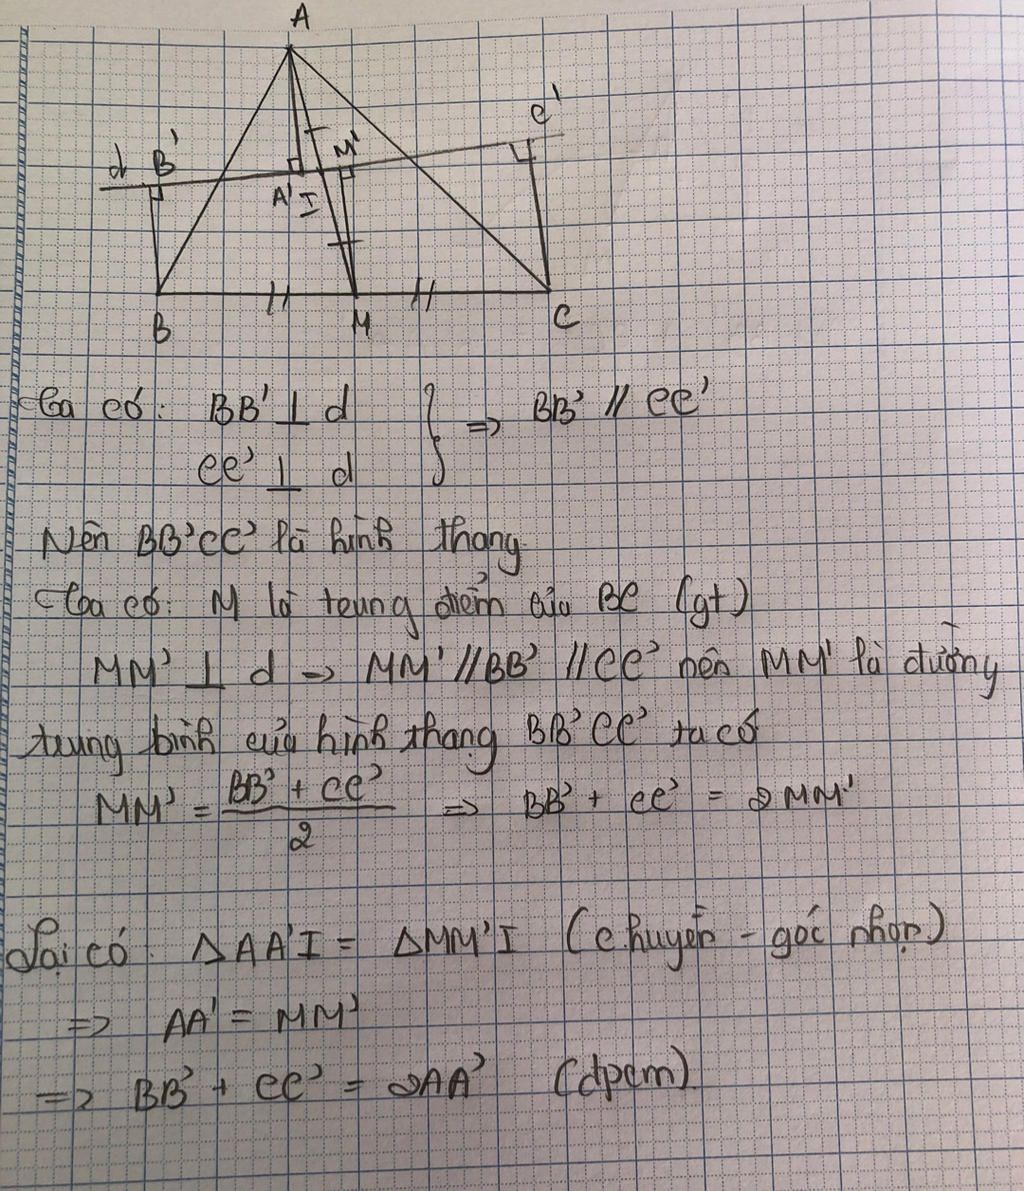 A
d B' A' I M' C'
B M C
Ta có: BB' ⊥ d } => BB' // CC'
CC' ⊥ d
Nên BB'CC' là hình thang
Ta có: M là trung điểm của BC (gt)
MM' ⊥ d => MM' // BB' // CC' nên MM' là đường
trung bình của hình thang BB'CC' ta có
MM' = (BB' + CC')/2 => BB' + CC' = 2MM'
Lại có: ΔAA'I = ΔMM'I (c.huyền - góc nhọn)
=> AA' = MM'
=> BB' + CC' = 2AA' (đpcm)